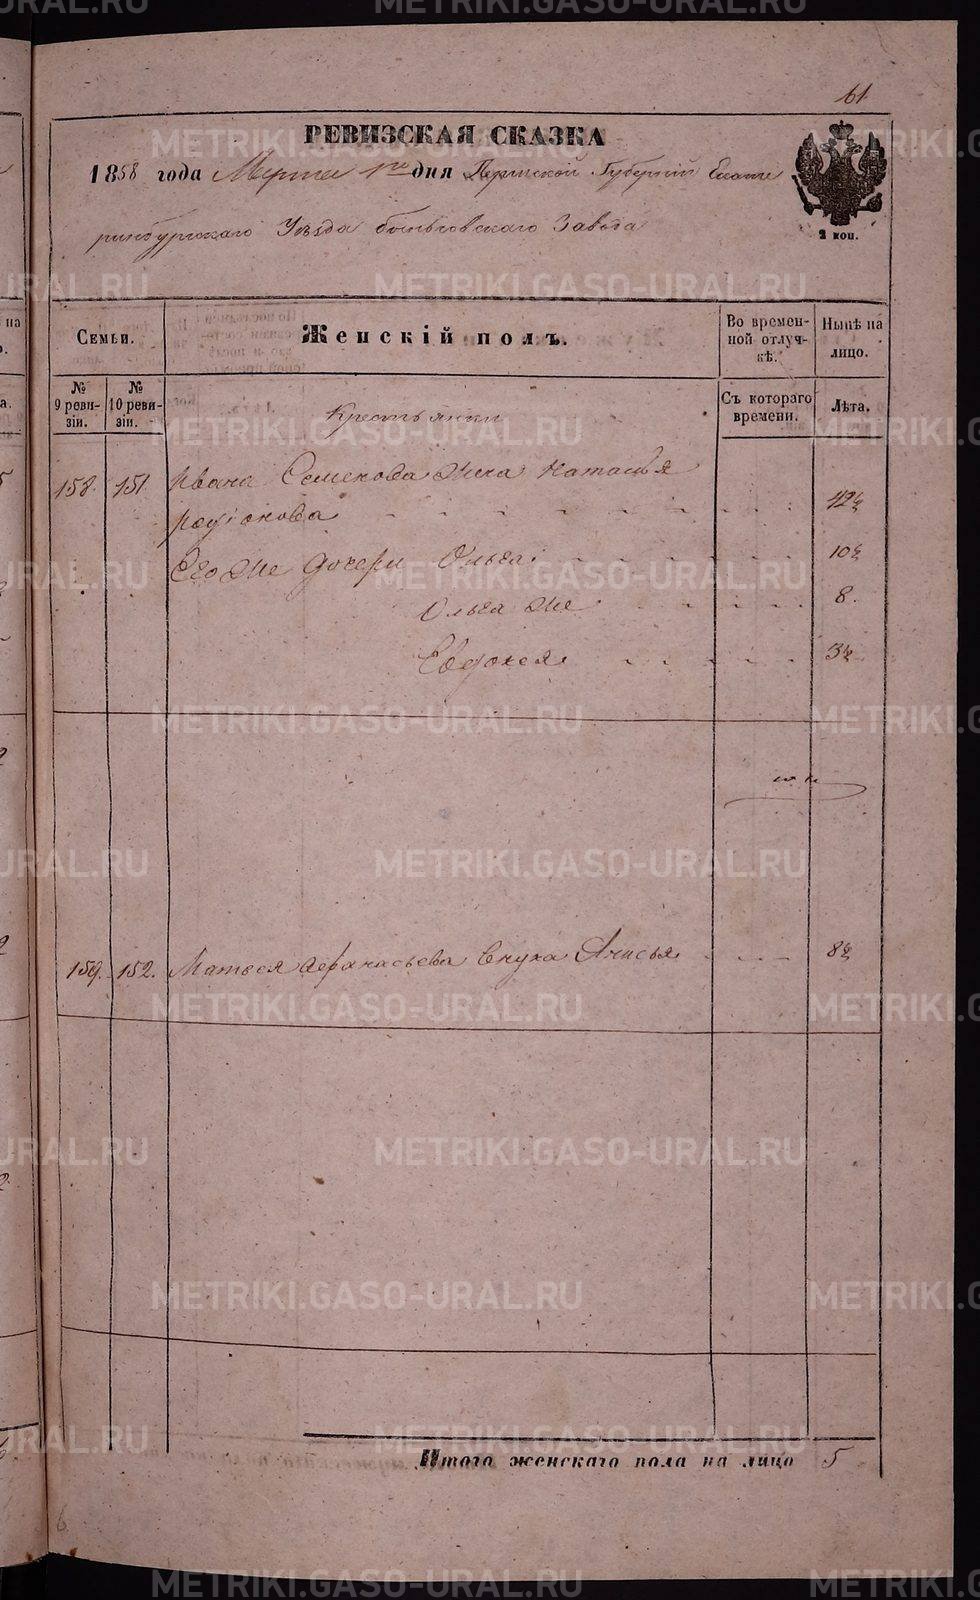 61
РЕВИЗСКАЯ СКАЗКА
1858 года Марта 1го дня Пермской Губерніи Екате
ринбургскаго Уѣзда Заведа
2 коп.
Семьи.
Женскій полъ.
Во времен-
ной отлуч-
кѣ.
Нынѣ на
лицо.
№
9 реви-
зіи.
№
10 реви-
зіи.
Съ котораго
времени.
Лѣта.
Крестьянки
158. 151. Ивана Семенова жена Наталья
Родіонова 42½
Его же дочери Ольга 10½
Ольга же 8.
Евдокея 3½
159. 152. Матвея Афанасьева внука Анисья 8½
Итого женскаго пола на лицо 5
METRIKI.GASO-URAL.RU